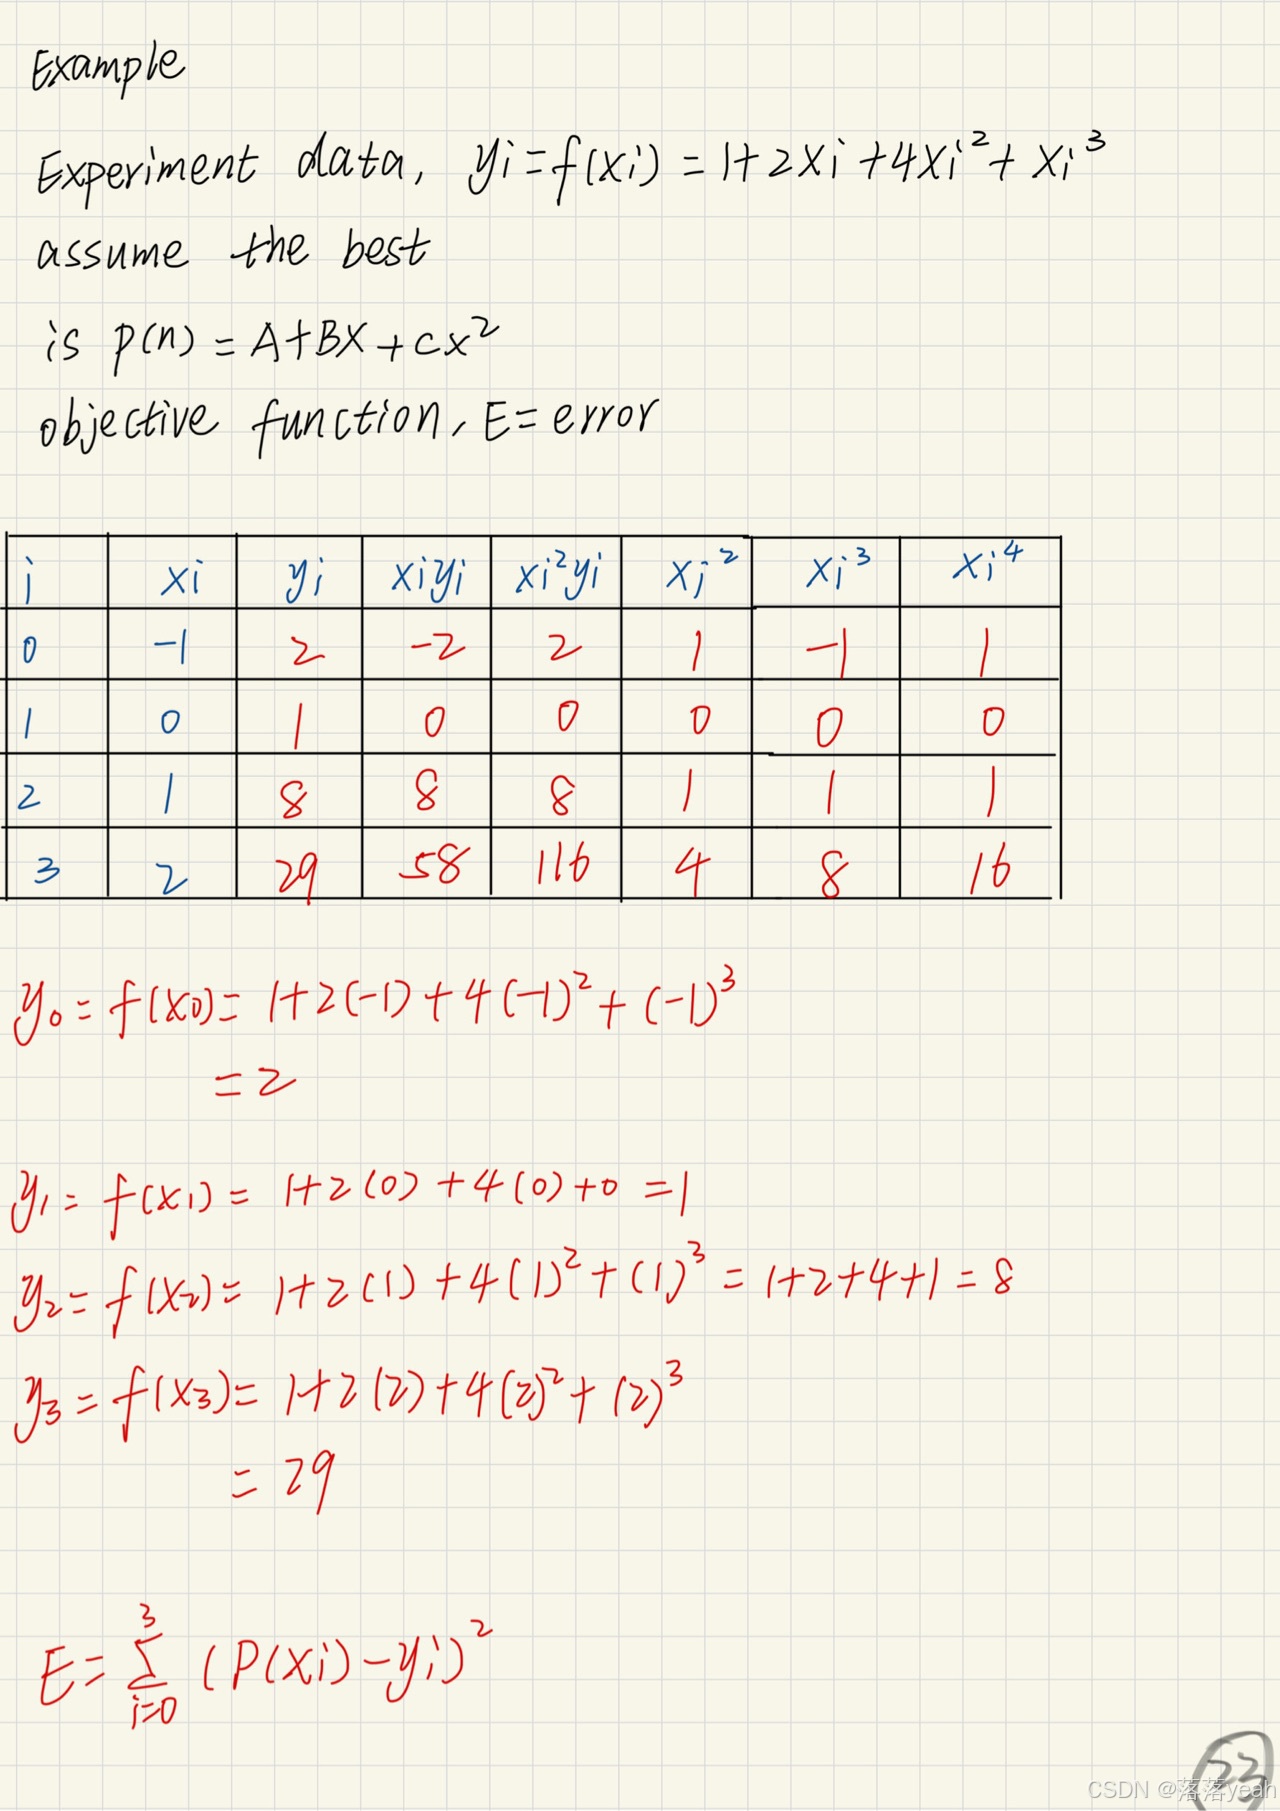 Example
Experiment data, yi=f(xi) = 1+2xi+4xi²+xi³
assume the best
is p(n) = A+BX+cx²
objective function, E=error
i xi yi xiyi xi²yi xi² xi³ xi⁴
0 -1 2 -2 2 1 -1 1
1 0 1 0 0 0 0 0
2 1 8 8 8 1 1 1
3 2 29 58 116 4 8 16
y₀ = f(x₀) = 1+2(-1)+4(-1)²+(-1)³
= 2
y₁ = f(x₁) = 1+2(0)+4(0)+0 = 1
y₂ = f(x₂) = 1+2(1)+4(1)²+(1)³ = 1+2+4+1 = 8
y₃ = f(x₃) = 1+2(2)+4(2)²+(2)³
= 29
3
E = Σ (P(xi)-yi)²
i=0
33
CSDN @落落yeah